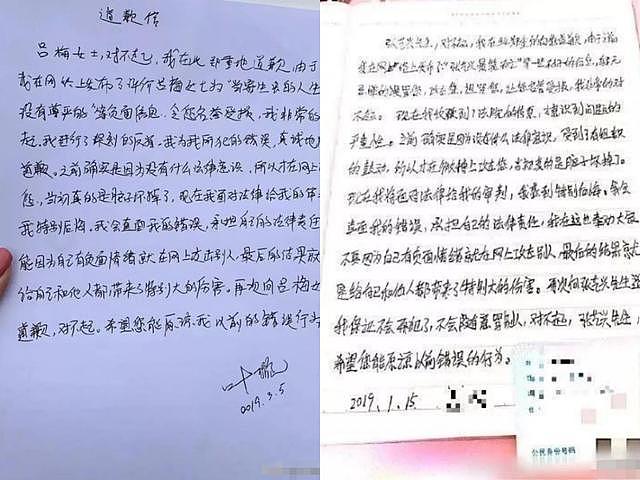 道歉信
吕梅女士,对不起,我在此郑重地道歉,由于
我在网站上发布了评价吕梅女士为"当寄生虫的人生
没有尊严的"等负面信息,令您名誉受损,我非常的
起,我进行了深刻的反省,我为我所犯的错误,真诚地
道歉。之前确实是因为没有什么法律意识,所以才在网上
您,当初真的是脑子坏掉了,现在我面对法律给我的审
我特别后悔。我会直面我的错误,承担自己的法律责任
能因为自己有负面情绪就在网上攻击别人,最后的结果
给自己和他人都带来了特别大的伤害。再次向吕梅女
道歉,对不起。希望您能原谅我以前的错误行为
2019.3.5
张若兴先生,对不起,我在此郑重的向您道歉,由于
对不起。现在我收到了法院的传票,意识到问题的
严重性。之前确实是因为没什么法律意识,受到了有组织
的鼓动,所以才在微博上攻击您,当初真的是脑子坏掉了。
现在我将面对法律给我的审判,我感到特别后悔。我会
直面我的错误,承担自己的法律责任,我在这也奉劝大家
不要因为自己有负面情绪就在网上攻击别人,最后的结果
是给自己和他人都带来了特别大的伤害。再次向张若兴先生
我保证不会再犯了,不会随意骂别人,对不起,张若兴先生,
希望您能原谅以前错误的行为。
2019.1.15
公民身份号码